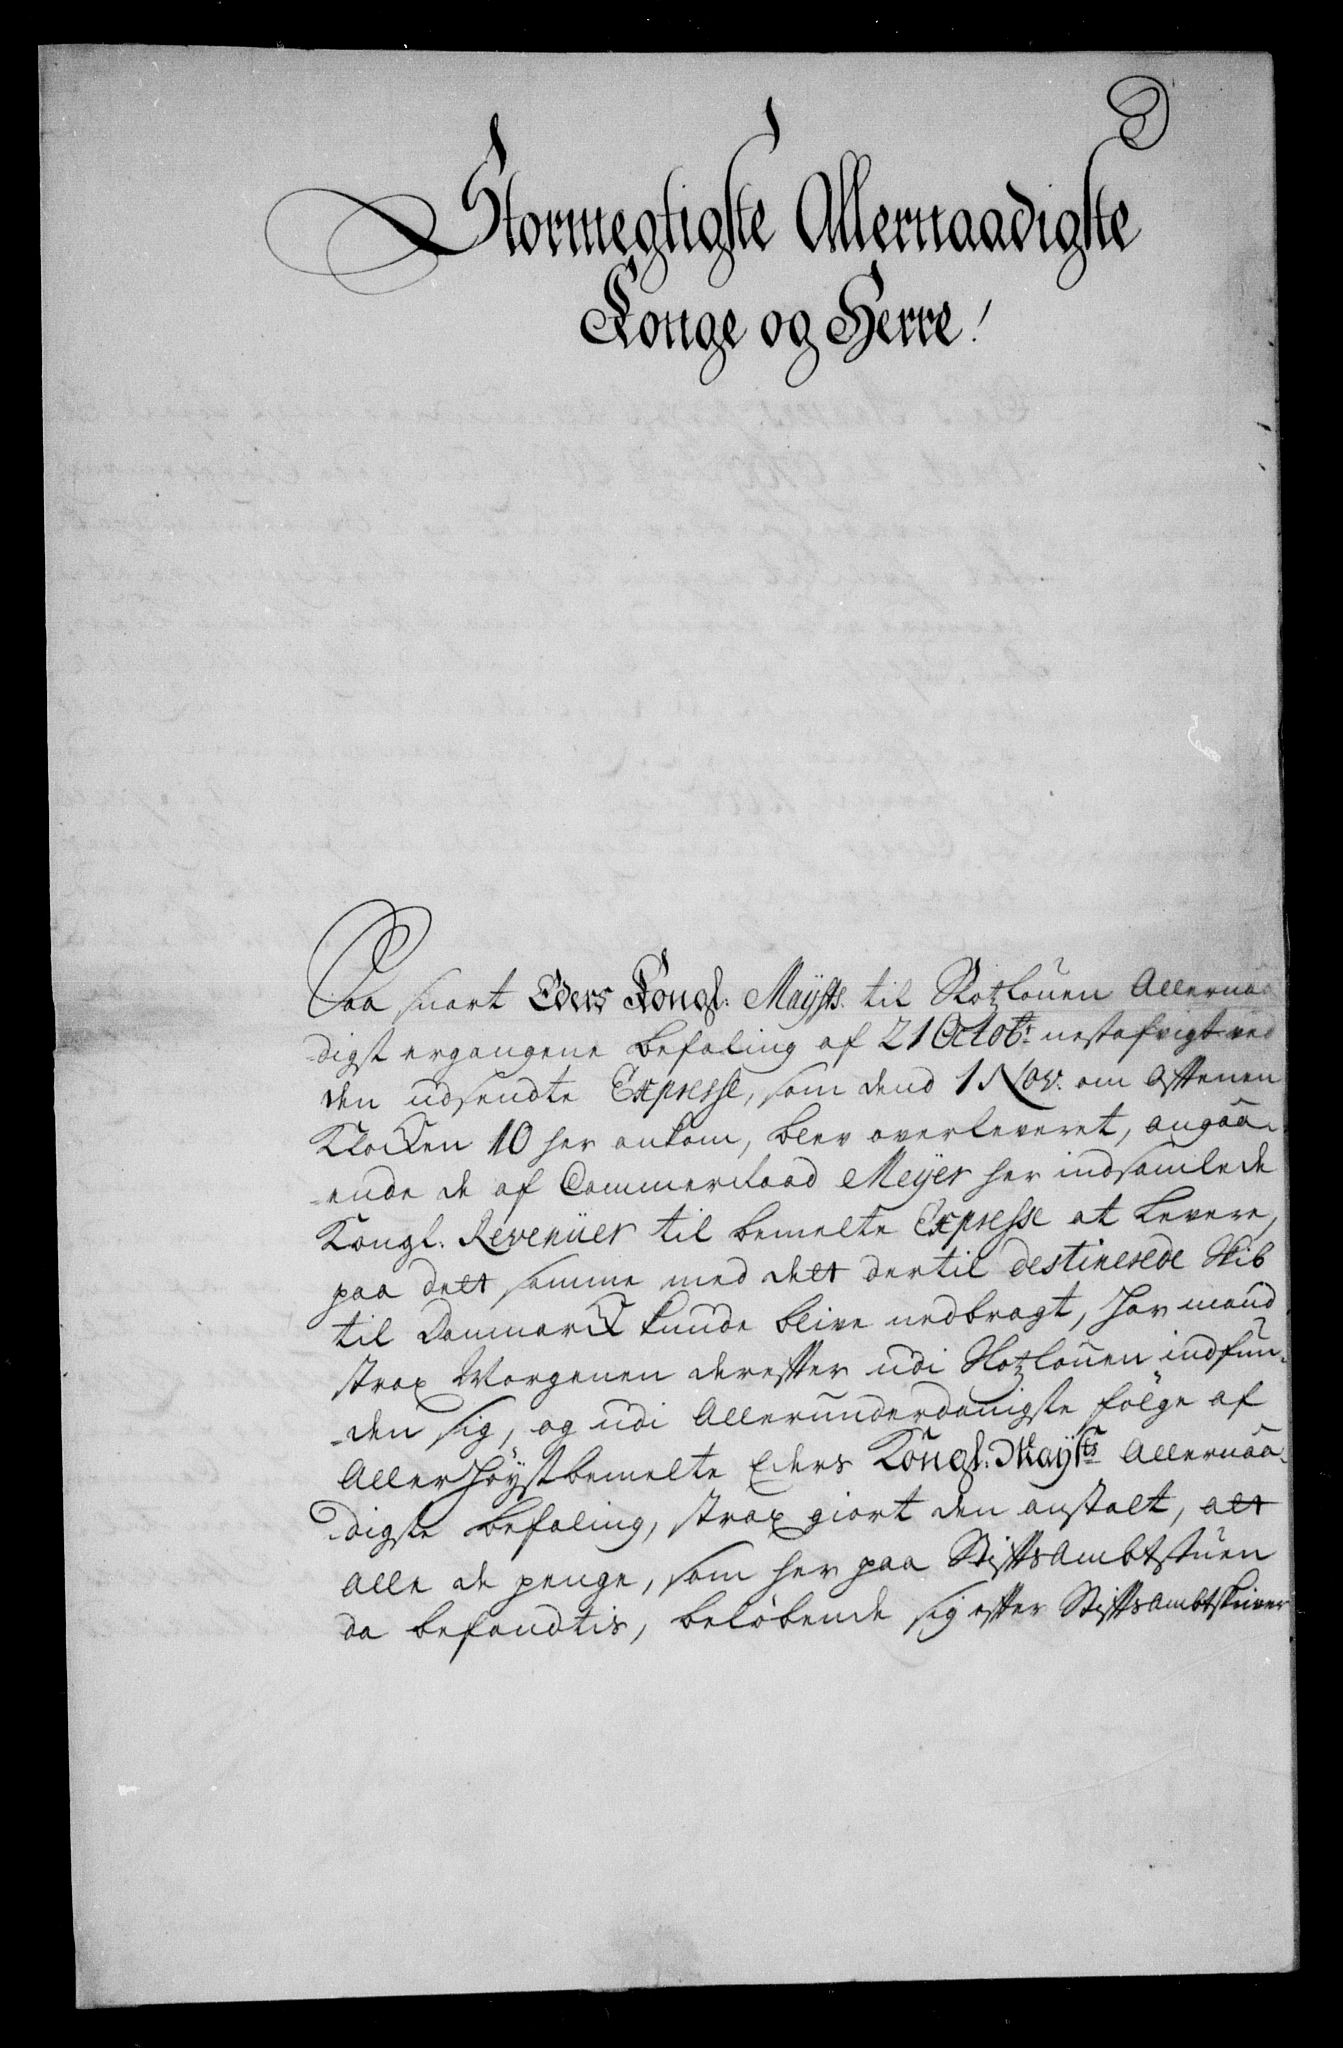 Stormegtigste Allernaadigste
Konge og Herre!
Saa snart Eders Kongl. Maysts. til Slotzlouen Allernaa
digst ergangene befaling af 21 Octobr: nestafvigt ved
den udsendte Expresse, som dend 1 Nov. om Afftenen
Klocken 10 her ankom, blev overleveret, angaa-
ende de af Commerceraad Meÿer her indsamlede
Kongl. Revenüer til bemelte Expresse at levere,
paa dett samme med dett dertil destinerede Skib
til Danmarck kunde blive nedbragt, har mand
strax Morgenen derefter udi Slotzlouen indfun-
den sig, og udi Allerunderdanigste fölge af
Aller Höÿstbemelte Eders Kongl. Maÿsts Allernaa-
digste befaling, strax giort den anstalt, alt
alle de penge, som her paa StiftsAmbtstuen
da befandtis, belöbende sig efter StiftsAmbtskriver